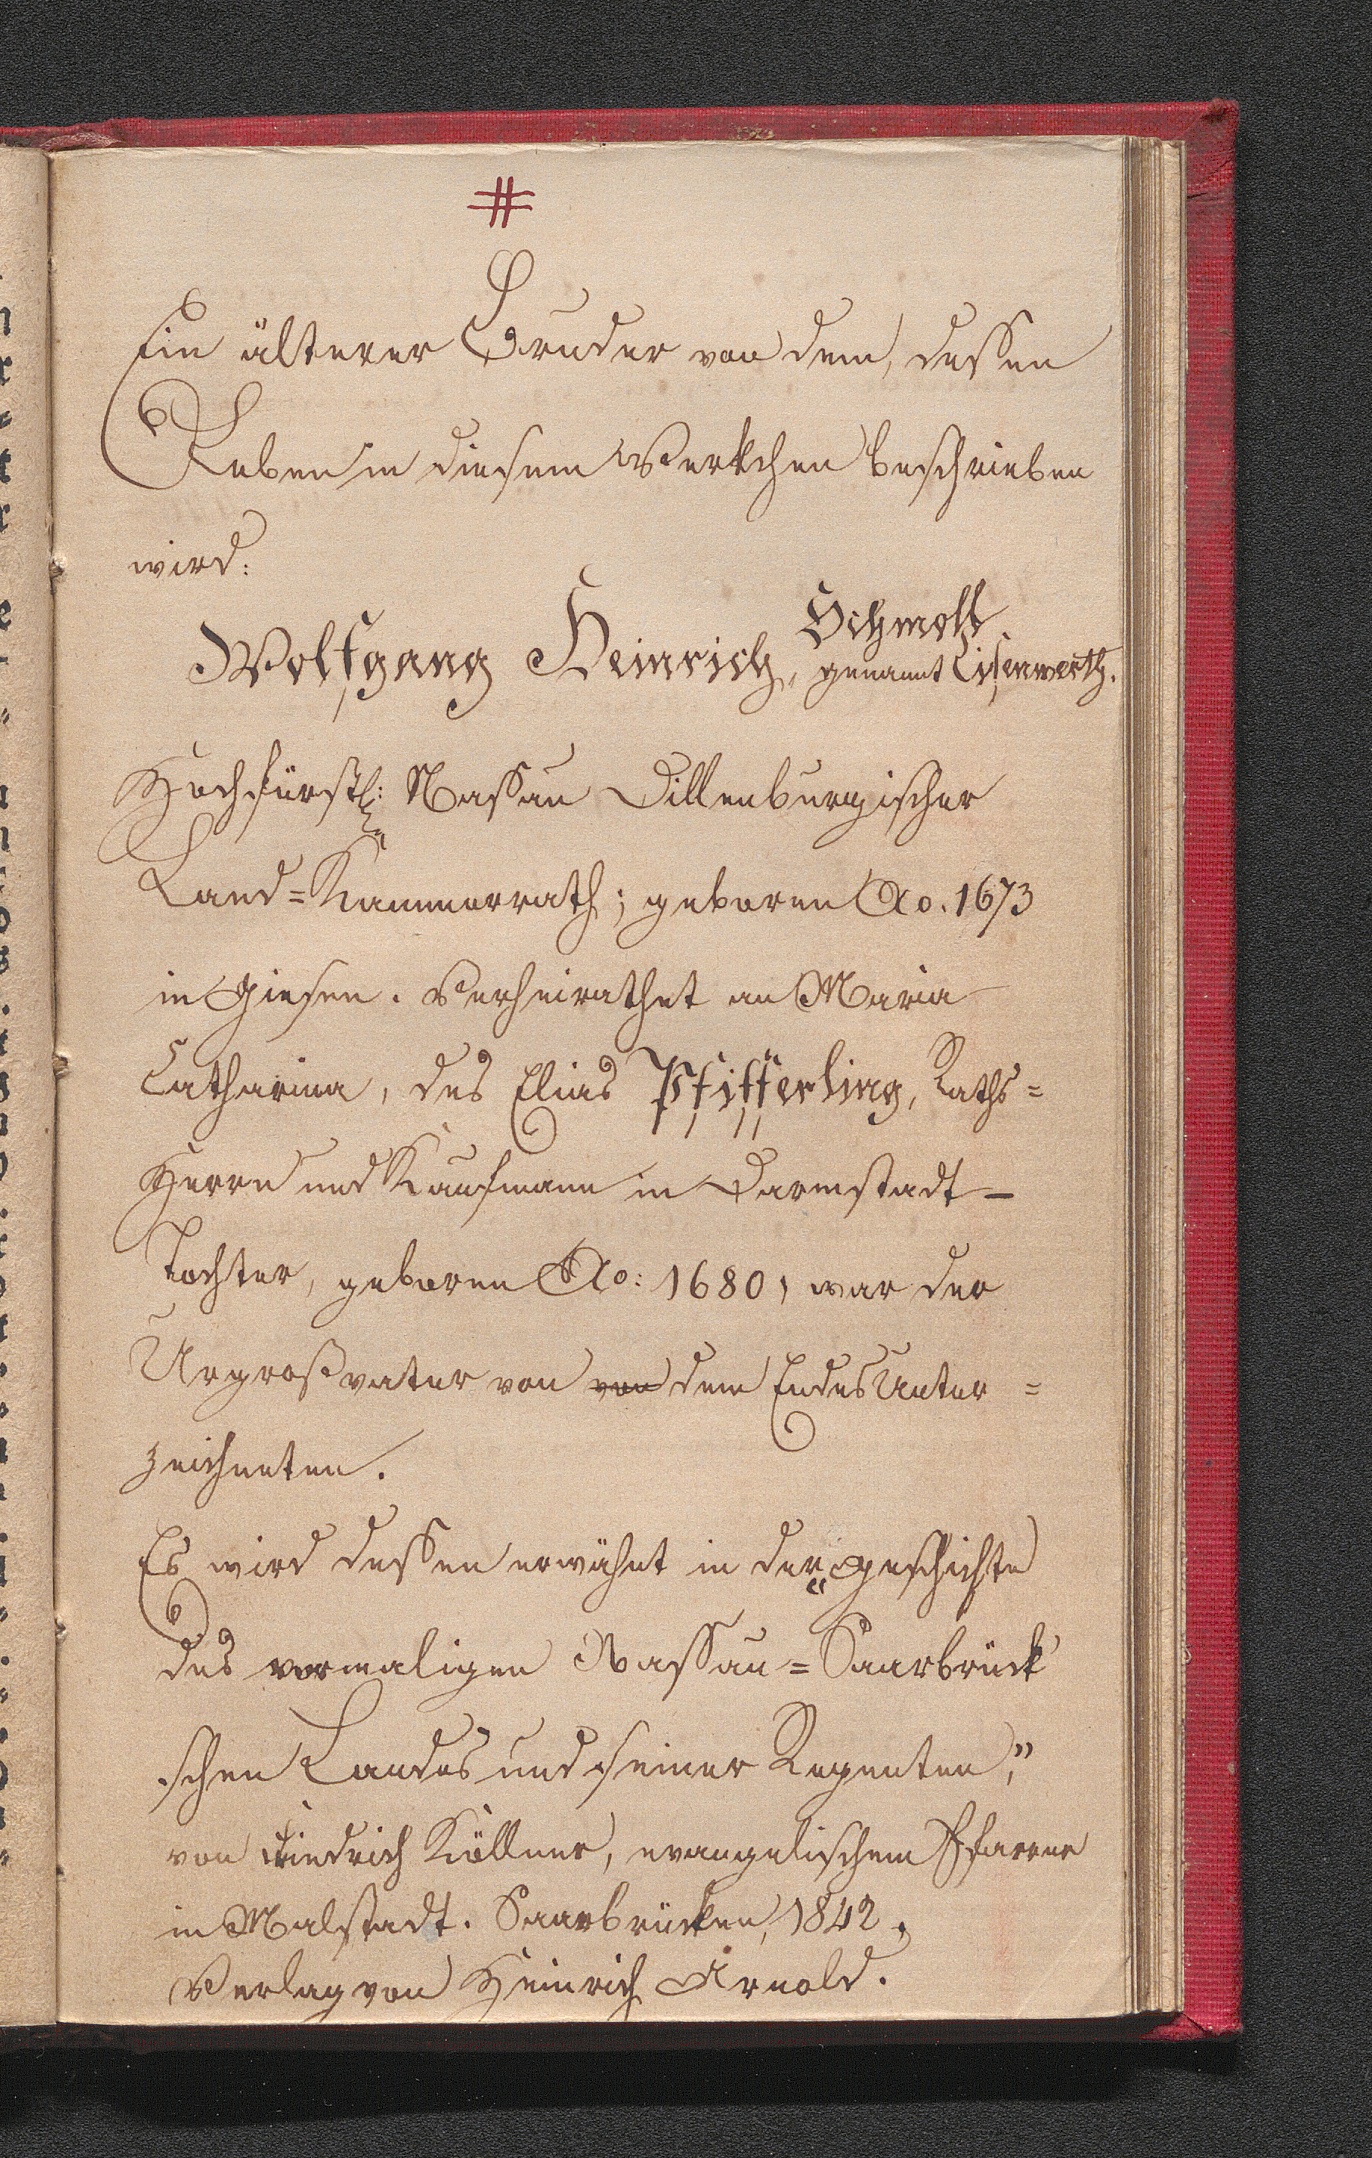 #
Ein älterer Bruder von dem, dessen
Leben in diesem Werkchen beschrieben
wird:
Schmoll
Wolfgang Heinrich, genannt Eisenwerth.
Hochfürstl: Nassau Dillenburgischer
Land=Kammerrath; geboren Ao. 1673
in Giesen. Verheirathet an Maria
Catharina, des Elias Pfifferling, Raths=
Herrn und Kaufmann in Darmstadt –
Tochter, geboren Ao: 1680, war der
Urgroßvater von von dem Endes Unter=
zeichneten.
Es wird dessen erwähnt in der „Geschichte
des vormaligen Nassau=Saarbrück'
schen Landes und seiner Regenten,"
von Friedrich Köllner, evangelischem Pfarrer
in Malstadt. Saarbrücken, 1842,
Verlag von Heinrich Arnold.